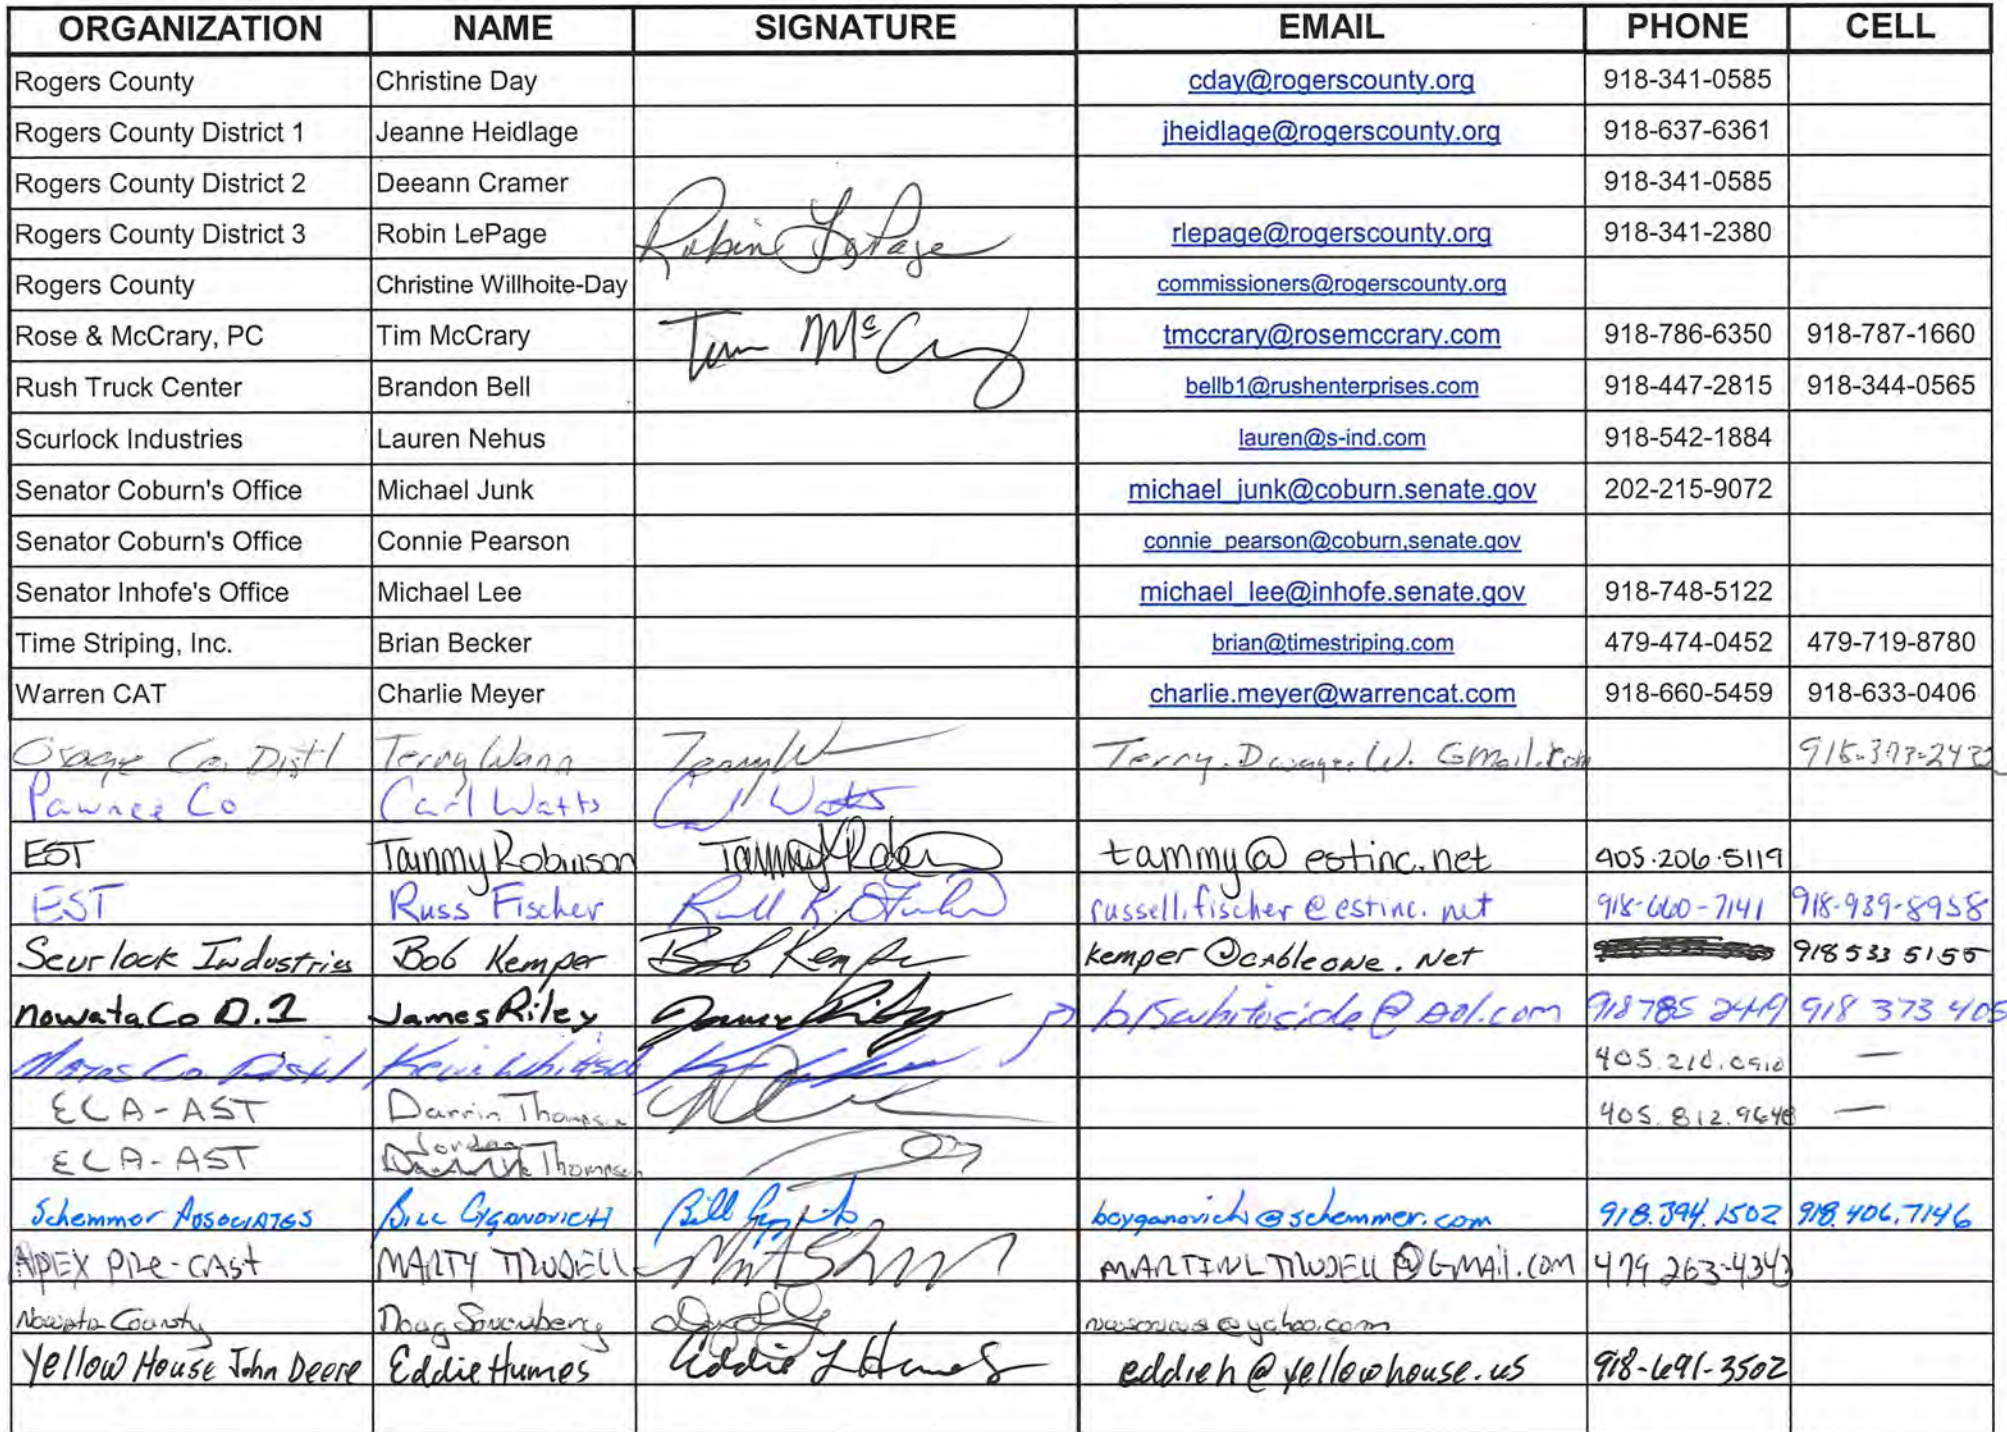 ORGANIZATION NAME SIGNATURE EMAIL PHONE CELL
Rogers County Christine Day cday@rogerscounty.org 918-341-0585
Rogers County District 1 Jeanne Heidlage jheidlage@rogerscounty.org 918-637-6361
Rogers County District 2 Deeann Cramer 918-341-0585
Rogers County District 3 Robin LePage Robin LePage rlepage@rogerscounty.org 918-341-2380
Rogers County Christine Willhoite-Day commissioners@rogerscounty.org
Rose & McCrary, PC Tim McCrary Tim McCrary tmccrary@rosemccrary.com 918-786-6350 918-787-1660
Rush Truck Center Brandon Bell bellb1@rushenterprises.com 918-447-2815 918-344-0565
Scurlock Industries Lauren Nehus lauren@s-ind.com 918-542-1884
Senator Coburn's Office Michael Junk michael_junk@coburn.senate.gov 202-215-9072
Senator Coburn's Office Connie Pearson connie_pearson@coburn,senate.gov
Senator Inhofe's Office Michael Lee michael_lee@inhofe.senate.gov 918-748-5122
Time Striping, Inc. Brian Becker brian@timestriping.com 479-474-0452 479-719-8780
Warren CAT Charlie Meyer charlie.meyer@warrencat.com 918-660-5459 918-633-0406
Osage Co. Dist 1 Terry Wann
Pawnee Co Carl Watts Carl Watts
EST Tammy Robinson tammy@estinc.net 405.206.5119
EST Russ Fischer russell.fischer@estinc.net 918-660-7141 918-939-8958
Scurlock Industries Bob Kemper Bob Kemper kemper@cableone.Net 918 533 5155
nowata Co D.1 James Riley James Riley @aol.com 918 785 2449 918 373 405
Co Dist 1 Kevin 405.210.0510 —
ECA-AST Darrin Thompson 405.812.9648 —
ECA-AST Jordan Thompson
Schemmer Associates Bill Cyganovich bcyganovich@schemmer.com 918.394.1502 918.406.7146
APEX Pre-Cast MARTY TRUDELL MARTINLTRUDELL@GMAIL.COM 479 263-4343
Nowata County Doug @yahoo.com
Yellow House John Deere Eddie Humes Eddie L Humes eddieh@yellowhouse.us 918-691-3502